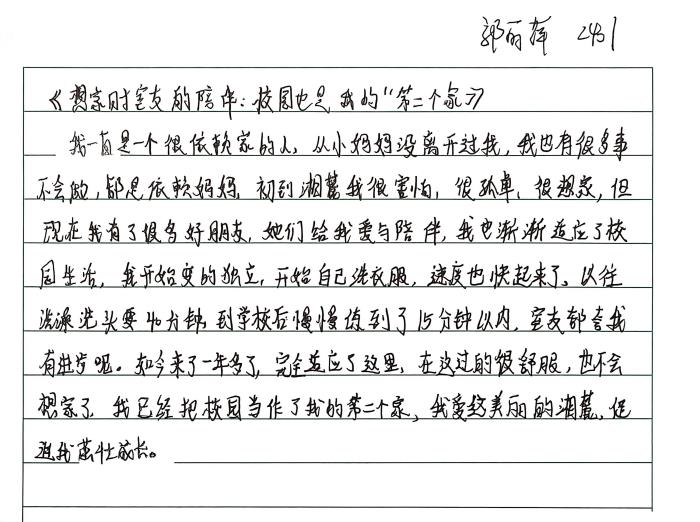 郭丽萍 2431
《想家时室友的陪伴：校园也是我的“第二个家》
我一直是一个很依赖家的人，从小妈妈没离开过我，我也有很多事
不会做，都是依赖妈妈，初到湘麓我很害怕，很孤单，很想家，但
现在我有了很多好朋友，她们给我爱与陪伴，我也渐渐适应了校
园生活，我开始变的独立，开始自己洗衣服，速度也快起来了。以往
洗澡洗头要40分钟，到学校后慢慢做到了15分钟以内，室友都夸我
有进步呢。如今来了一年多了，完全适应了这里，在这过的很舒服，也不会
想家了，我已经把校园当作了我的第二个家，我爱这美丽的湘麓，促
进我茁壮成长。